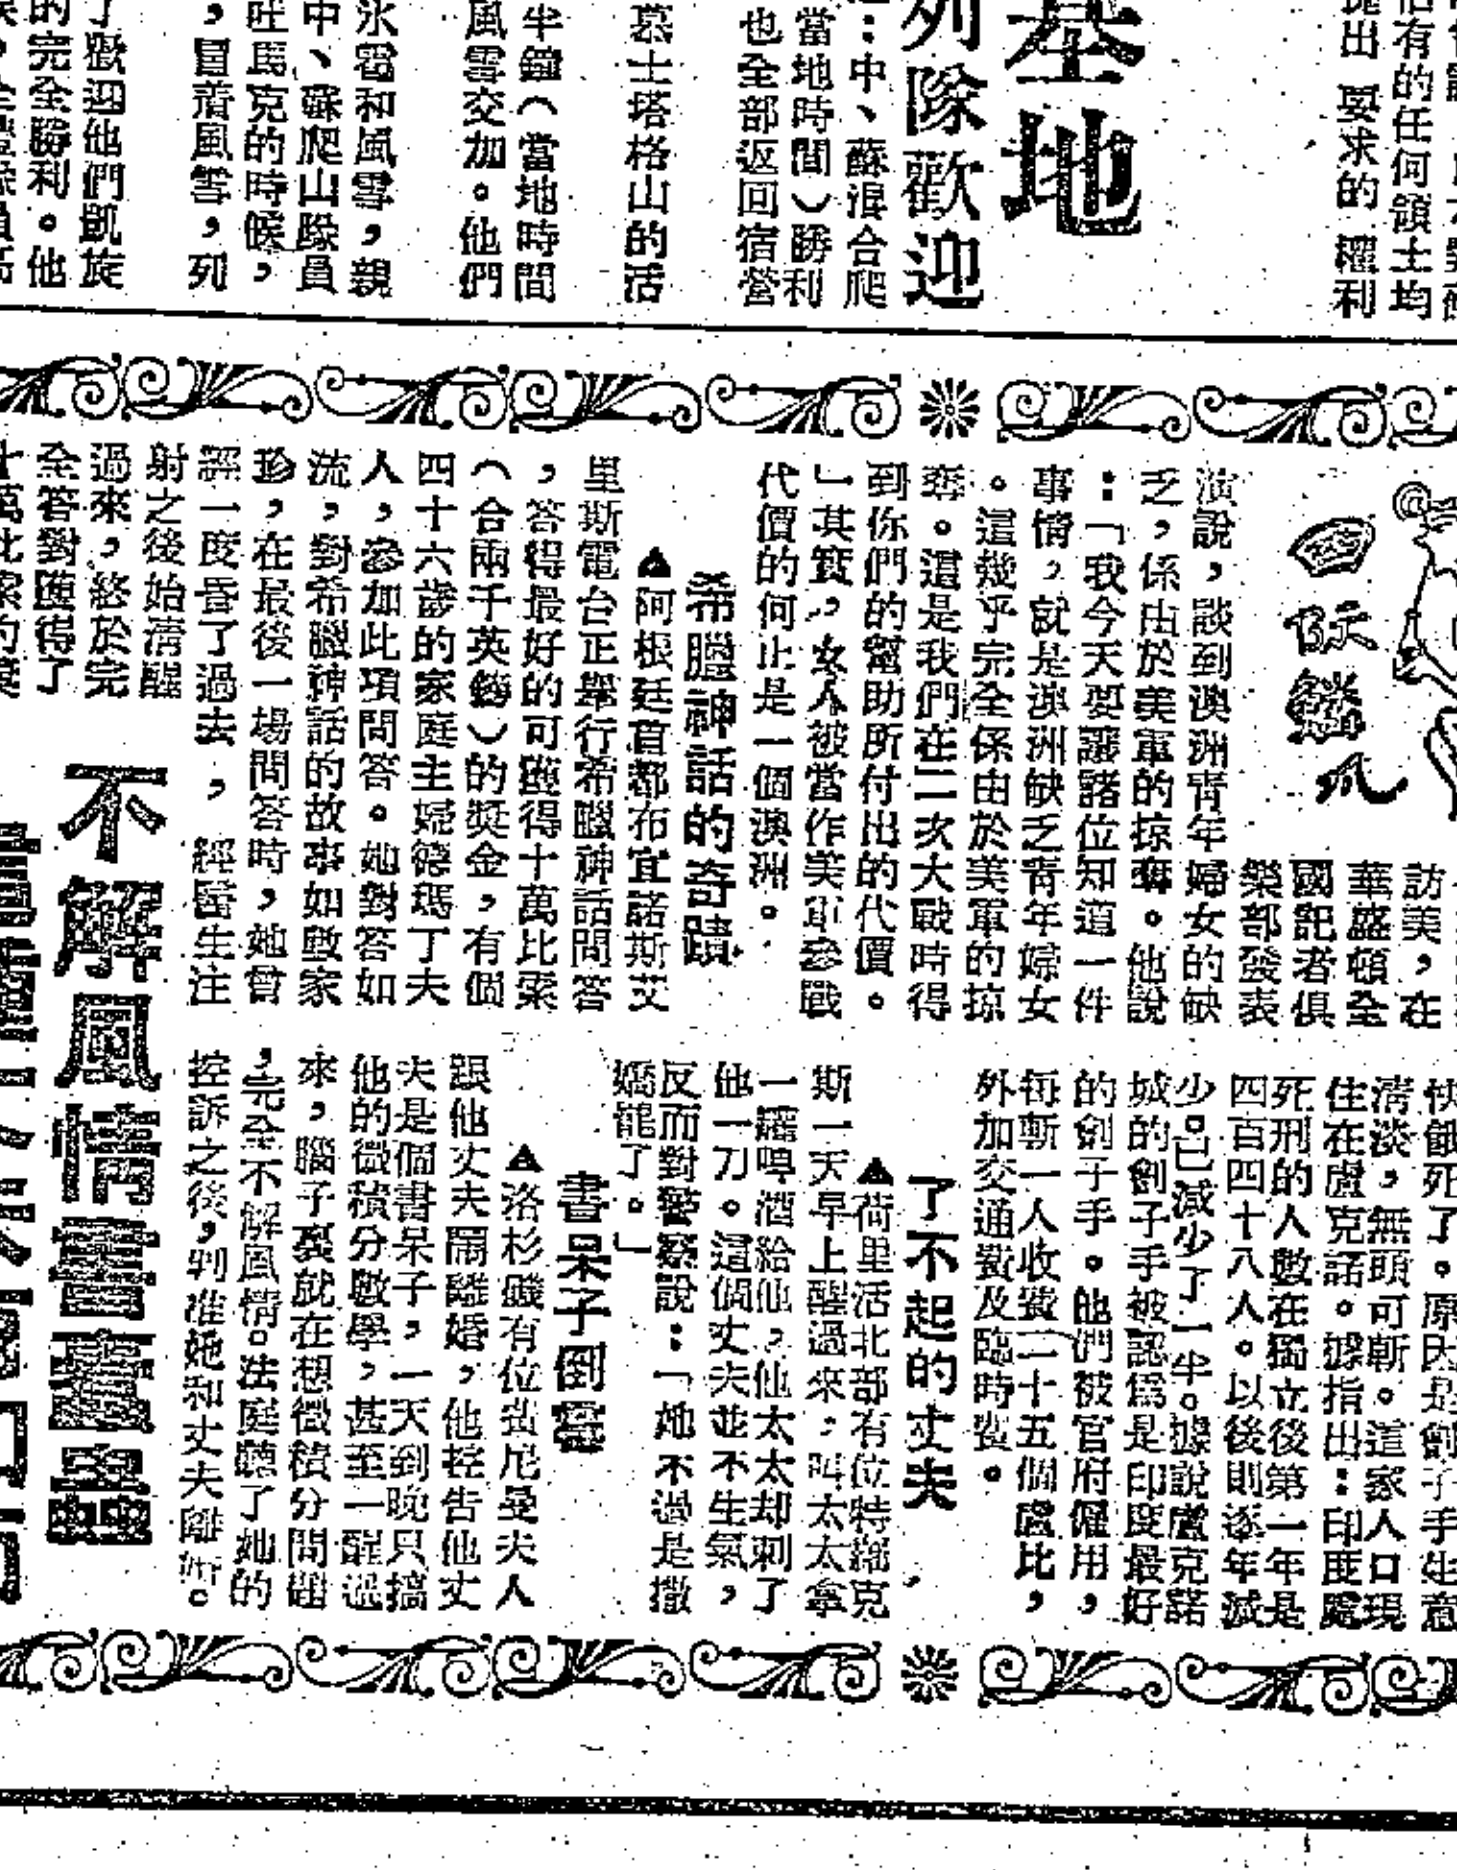 基地
列隊歡迎
：中、蘇混合爬
當地時間）勝利
也全部返回宿營
慕士塔格山的活
半鐘（當地時間
風雪交加。他們
冰雹和風雪，親
中、蘇爬山隊員
吐馬克的時候，
，冒着風雪，列
了歡迎他們凱旋
的完全勝利。他
有的任何領土均
出 要求的 權利
訪美，在
華盛頓全
國記者俱
樂部發表
演說，談到澳洲青年婦女的缺
乏，係由於美軍的掠奪。他說
：「我今天要讓諸位知道一件
事情，就是澳洲缺乏青年婦女
。這幾乎完全係由於美軍的掠
奪。這是我們在二次大戰時得
到你們的幫助所付出的代價。
」其實，女人被當作美軍參戰
代價的何止是一個澳洲。
希臘神話的奇蹟
▲阿根廷首都布宜諾斯艾
里斯電台正舉行希臘神話問答
，答得最好的可獲得十萬比索
（合兩千英鎊）的獎金，有個
四十六歲的家庭主婦德瑪丁夫
人，參加此項問答。她對答如
流，對希臘神話的故事如數家
珍，在最後一場問答時，她曾
經一度昏了過去，經醫生注
射之後始清醒
過來，終於完
全答對獲得了
十萬比索的獎
快餓死了。原因是劊子手生意
清淡，無頭可斬。這家人口現
住在盧克諾。據指出：印度處
死刑的人數在獨立後第一年是
四百四十八人。以後則逐年減
少。已減少了一半。據說盧克諾
城的劊子手被認爲是印度最好
的劊子手。他們被官府僱用，
每斬一人收費二十五個盧比，
外加交通費及臨時費。
了不起的丈夫
▲荷里活北部有位特鄒克
斯一天早上醒過來，叫太太拿
一罐啤酒給他，他太太却刺了
他一刀。這個丈夫並不生氣，
反而對警察說：「她不過是撒
嬌罷了。」
書呆子倒霉
▲洛杉磯有位黃尼曼夫人
跟他丈夫鬧離婚，他控告他丈
夫是個書呆子，一天到晚只搞
他的微積分數學，甚至一醒過
來，腦子裏就在想微積分問題
，完全不解風情。法庭聽了她的
控訴之後，判准她和丈夫離婚。
不解風情